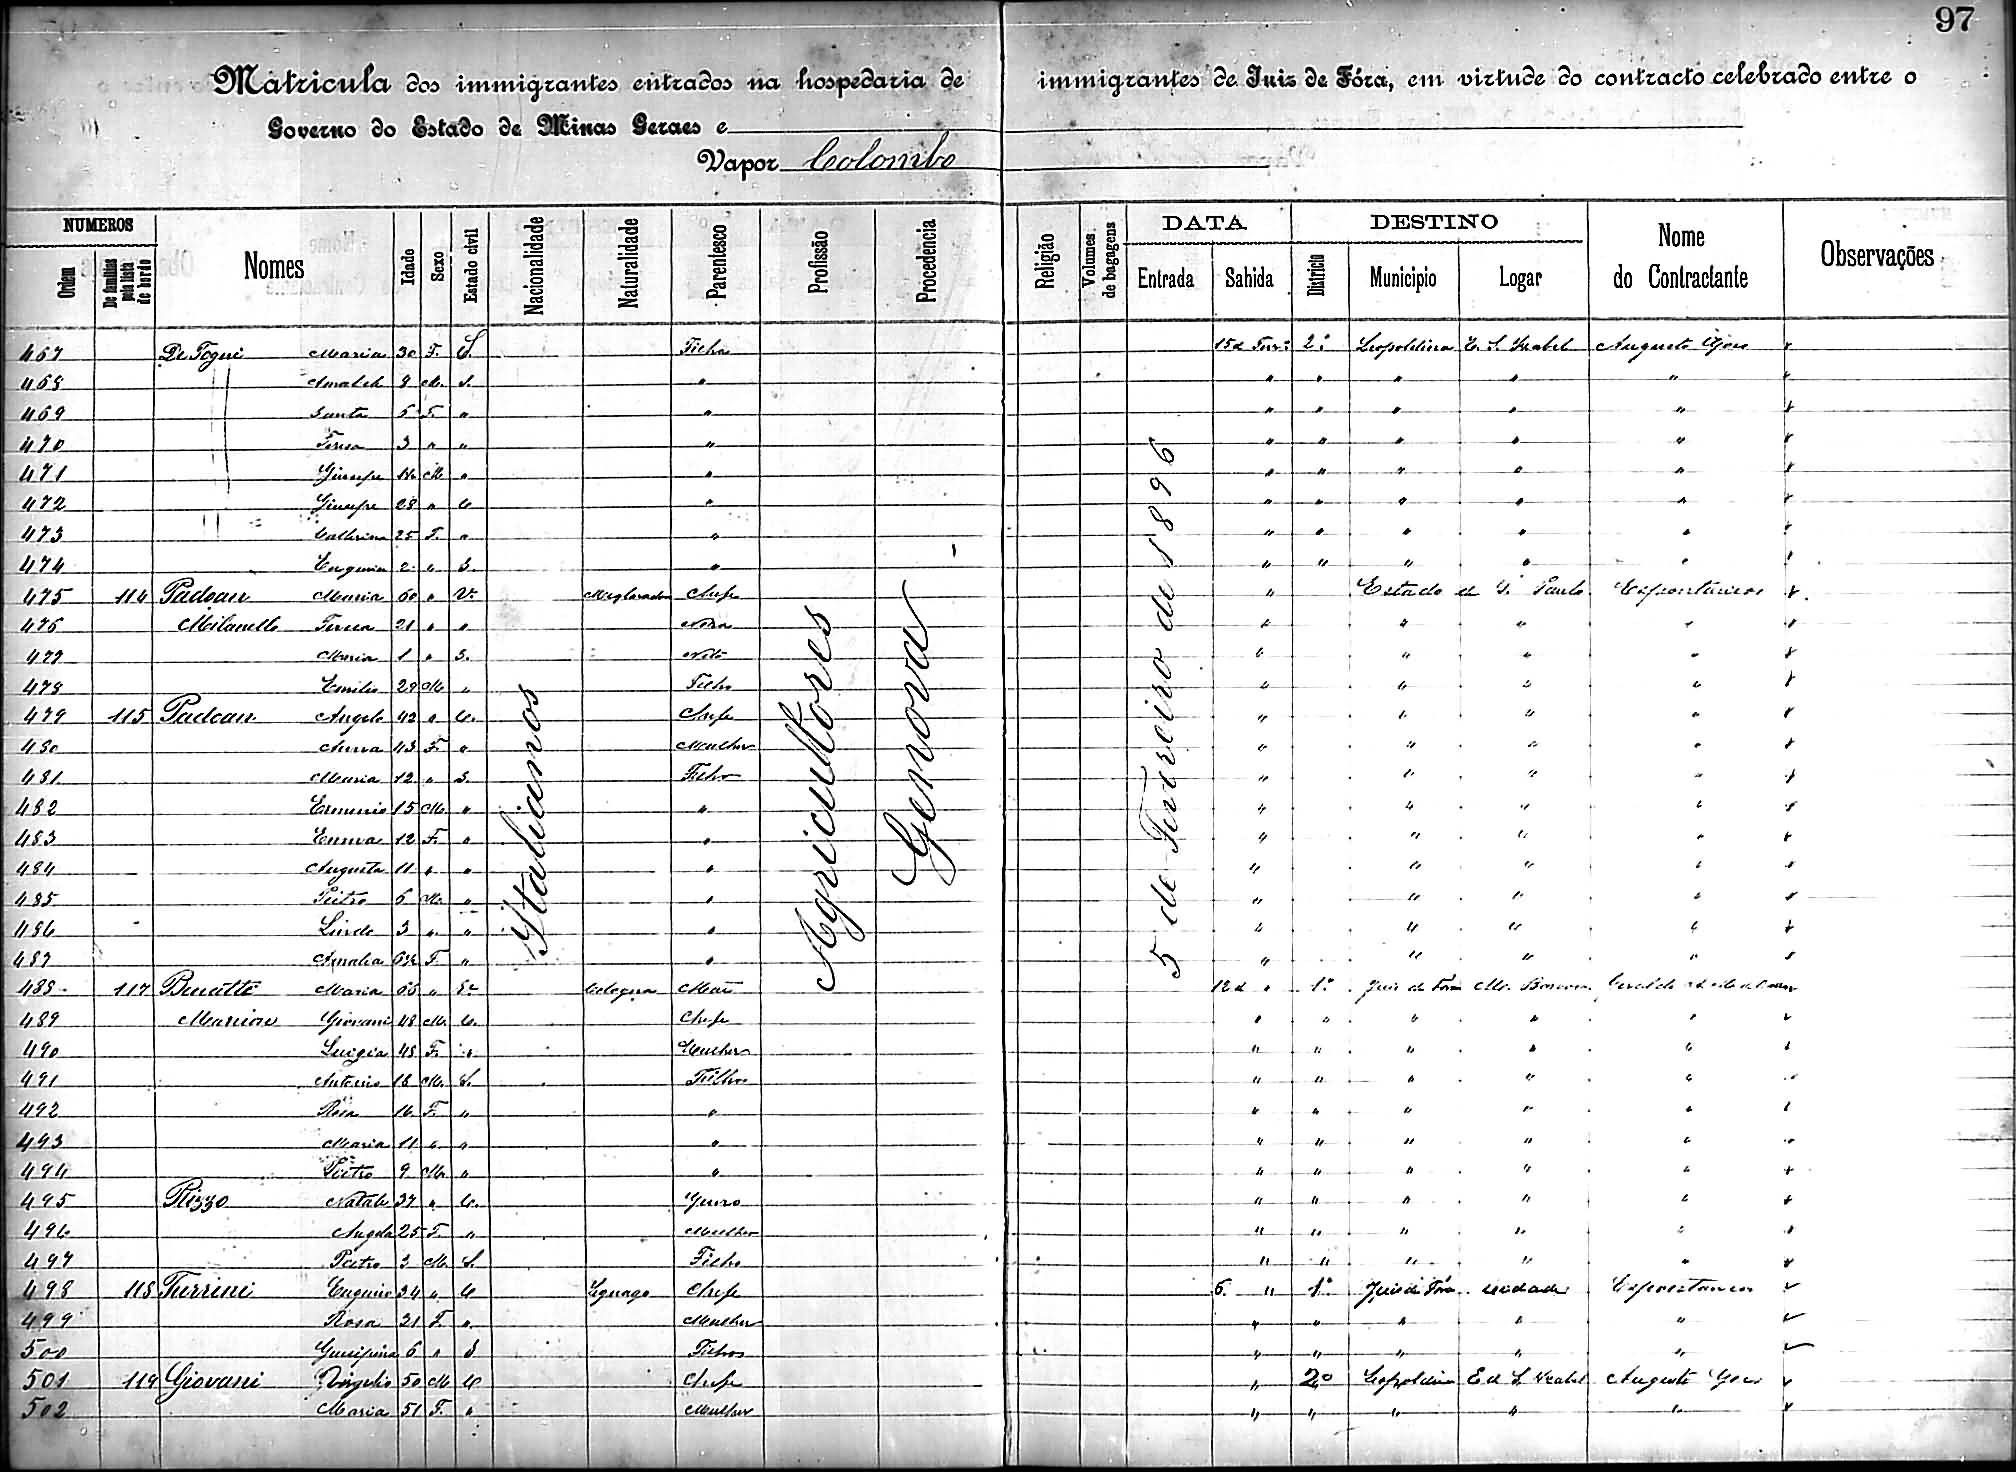 97
Matricula dos immigrantes entrados na hospedaria de immigrantes de Juiz de Fóra, em virtude do contracto celebrado entre o
Governo do Estado de Minas Geraes e
Vapor Colombo
NUMEROS DATA DESTINO
Ordem De familias pela lista de bordo Nomes Idade Sexo Estado civil Nacionalidade Naturalidade Parentesco Profissão Procedencia Religião Volumes de bagagens Entrada Sahida Districto Municipio Logar Nome do Contractante Observações
Italianos
Agricultores
Genova
5 de Fevereiro de 1896
467 De Togni Maria 30 F. Filha 15 2º Leopoldina Augusto
468 8 M. S. " " " " " "
469 Santa 5 F. " " " " " " "
470 Teresa 3 " " " " " " " "
471 Giuseppe M " " " " " " "
472 Giuseppe 28 " C " " " " " "
473 Catterina 25 F. " " " " " " "
474 Eugenia 2 " S. " " " " " "
475 114 Padoan Maria 60 " V. Chefe " Estado de S. Paulo Espontaneos
476 Milanello Teresa 21 " " Nora " " " "
477 Maria 1 " S. Neto " " " "
478 Emilio 29 M " Filho " " " "
479 115 Padoan Angelo 42 " C. Chefe " " " "
480 Anna 43 F. " Mulher " " " "
481 Maria 12 " S. Filho " " " "
482 Erminio 15 M. " " " " " "
483 Emma 12 F. " " " " " "
484 Augusta 11 " " " " " " "
485 Pietro 6 M. " " " " " "
486 3 " " " " " " "
487 Amalia F. " " " " " "
488 117 Maria 65 " Cologna Mãe 12 " 1º Juiz de Fóra
489 Giovanni 48 M. C. Chefe " " " " "
490 Luigia 45 F. " Mulher " " " " "
491 Antonio 18 M. S. Filhos " " " " "
492 Rosa 16 F. " " " " " " "
493 Maria 11 " " " " " " " "
494 Pietro 9 M. " " " " " " "
495 Rizzo Natale 37 " C. Genro " " " " "
496 Angela 25 F. " Mulher " " " " "
497 Pietro 3 M. S. Filho " " " " "
498 118 Turrini Eugenio 34 " C Legnago Chefe 6 " 1º Juiz de Fóra cidade Espontaneos
499 Rosa 21 F. " Mulher " " " " "
500 Giuseppina 6 " S Filhos " " " " "
501 119 Giovani Virgilio 50 M C Chefe " 2º Leopoldina Augusto
502 Maria 51 F. " Mulher " " " " "